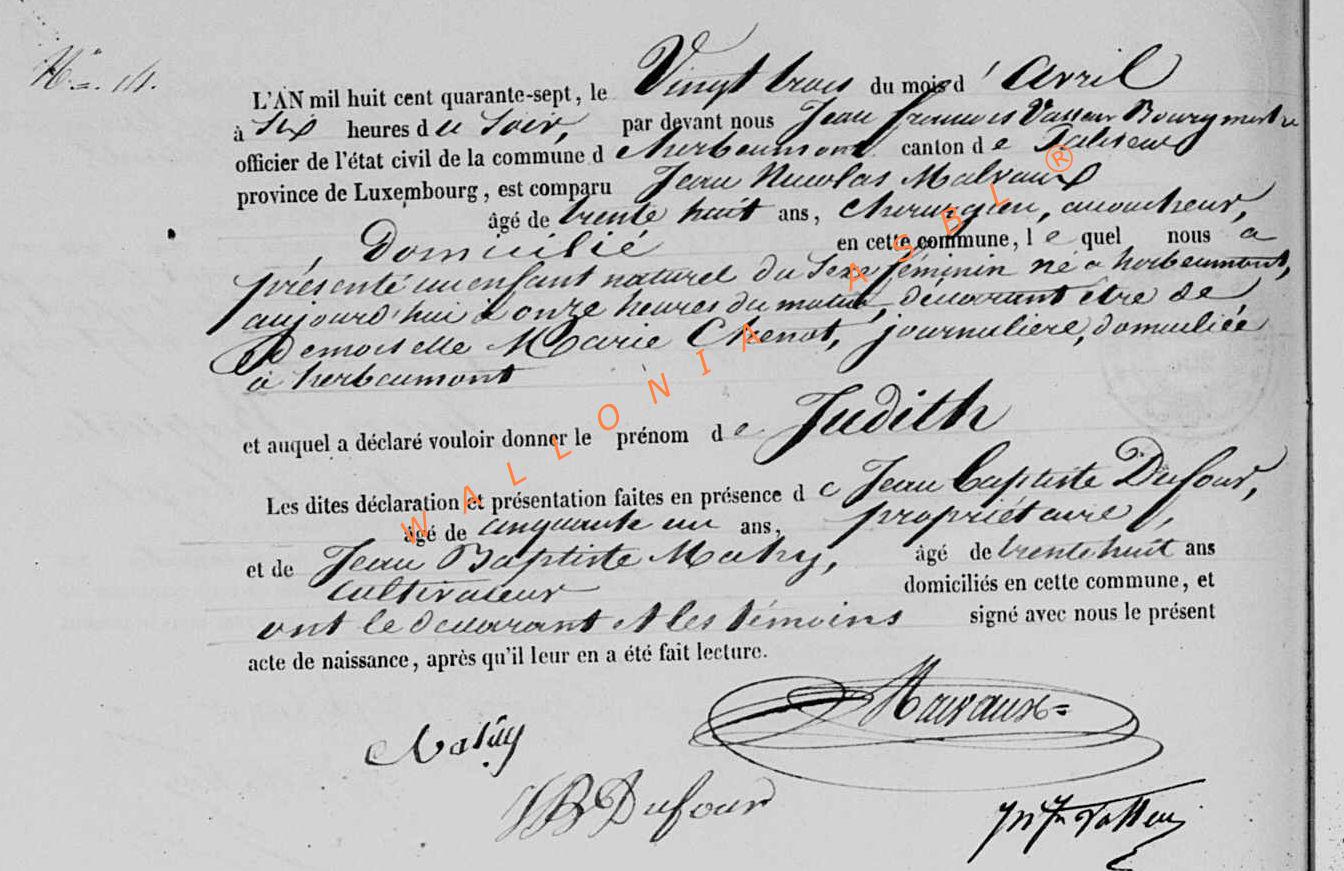 N° 14.
L'AN mil huit cent quarante-sept, le Vingt trois du mois d'Avril
à Six heures du Soir, par devant nous Jean François Vasseur Bourgmestre
officier de l'état civil de la commune d'herbeumont canton de Paliseul
province de Luxembourg, est comparu Jean Nicolas Malvaux
âgé de trente huit ans, chirurgien, accoucheur,
, Domicilié en cette commune, lequel nous a
présenté un enfant naturel du Sexe féminin né à herbeumont,
aujourd'hui à onze heures du matin, déclarant être de
Demoiselle Marie Chenot, journalière, domiciliée
à herbeumont
et auquel a déclaré vouloir donner le prénom de Judith
Les dites déclaration et présentation faites en présence de Jean Baptiste Dufour,
âgé de cinquante un ans, propriétaire,
et de Jean Baptiste Mathy, âgé de trente huit ans
cultivateur domiciliés en cette commune, et
ont le déclarant et les témoins signé avec nous le présent
acte de naissance, après qu'il leur en a été fait lecture.
Malvaux
Mathy
JB Dufour
WALLONIA ASBL ®